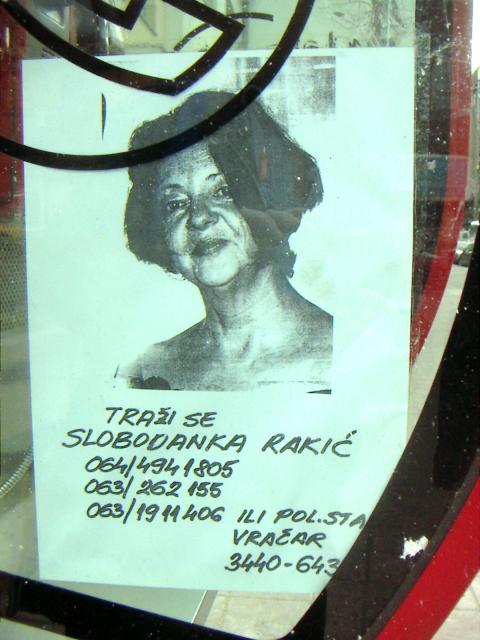 TRAŽI SE
SLOBODANKA RAKIĆ
064/4941805
063/262 155
063/1911406 ILI POL.STA
VRAČAR
3440-643